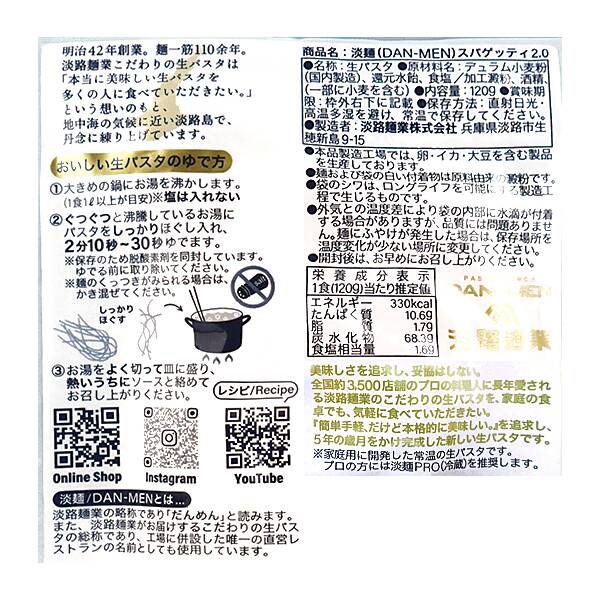 明治42年創業。麺一筋110余年。
淡路麺業こだわりの生パスタは
「本当に美味しい生パスタを
多くの人に食べていただきたい。」
という想いのもと、
地中海の気候に近い淡路島で、
丹念に練り上げています。
おいしい生パスタのゆで方
①大きめの鍋にお湯を沸かします。
(1食1ℓ以上が目安)※塩は入れない
②ぐつぐつと沸騰しているお湯に
パスタをしっかりほぐし入れ、
2分10秒〜30秒ゆでます。
※保存のため脱酸素剤を同封しています。
ゆでる前に取り除いてください。
※麺のくっつきがみられる場合は、
かき混ぜてください。
しっかり
ほぐす
③お湯をよく切って皿に盛り、
熱いうちにソースと絡めて
お召し上がりください。
レシピ/Recipe
Online Shop
Instagram
YouTube
淡麺/DAN-MENとは…
淡路麺業の略称であり「だんめん」と読みます。
また、淡路麺業がお届けするこだわりの生パス
タの総称であり、工場に併設した唯一の直営レ
ストランの名前としても使用しています。
商品名:淡麺(DAN-MEN)スパゲッティ2.0
●名称:生パスタ●原材料名:デュラム小麦粉
(国内製造)、還元水飴、食塩/加工澱粉、酒精、
(一部に小麦を含む)●内容量:120g●賞味期
限:枠外右下に記載●保存方法:直射日光・
高温多湿を避け、常温で保存してください。
●製造者:淡路麺業株式会社 兵庫県淡路市生
穂新島9-15
●本品製造工場では、卵・イカ・大豆を含む製品
を生産しております。
●麺および袋の白い付着物は原料由来の澱粉です。
●袋のシワは、ロングライフを可能にする製造工
程で生じるものです。
●外気との温度差により袋の内部に水滴が付着
する場合がありますが、品質には問題ありませ
ん。麺にふやけが発生した場合は、保存場所を
温度変化が少ない場所に変更してください。
●開封後は、お早めにお召し上がりください。
栄養成分表示
1食(120g)当たり推定値
エネルギー 330kcal
たんぱく質 10.6g
脂質 1.7g
炭水化物 68.3g
食塩相当量 1.6g
DAN-MEN
淡路麺業
美味しさを追求し、妥協はしない。
全国約3,500店舗のプロの料理人に長年愛され
る淡路麺業のこだわりの生パスタを、家庭の食
卓でも、気軽に食べていただきたい。
『簡単手軽、だけど本格的に美味しい。』を追求し、
5年の歳月をかけ完成した新しい生パスタです。
※家庭用に開発した常温の生パスタです。
プロの方には淡麺PRO(冷蔵)を推奨します。